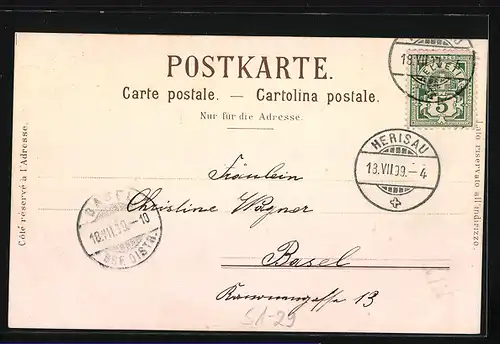 POSTKARTE.
Carte postale. — Cartolina postale.
Nur für die Adresse.
Côté réservé à l'Adresse.
Lato riservato all'indirizzo.
HERISAU
18.VII.99.–4
HERISAU
18.VII.99.–4
HELVETIA
5
BASEL
18.VII.99.–10
BRF. DISTR.
Fräulein
Christine Wagner
Basel
13
SA-29